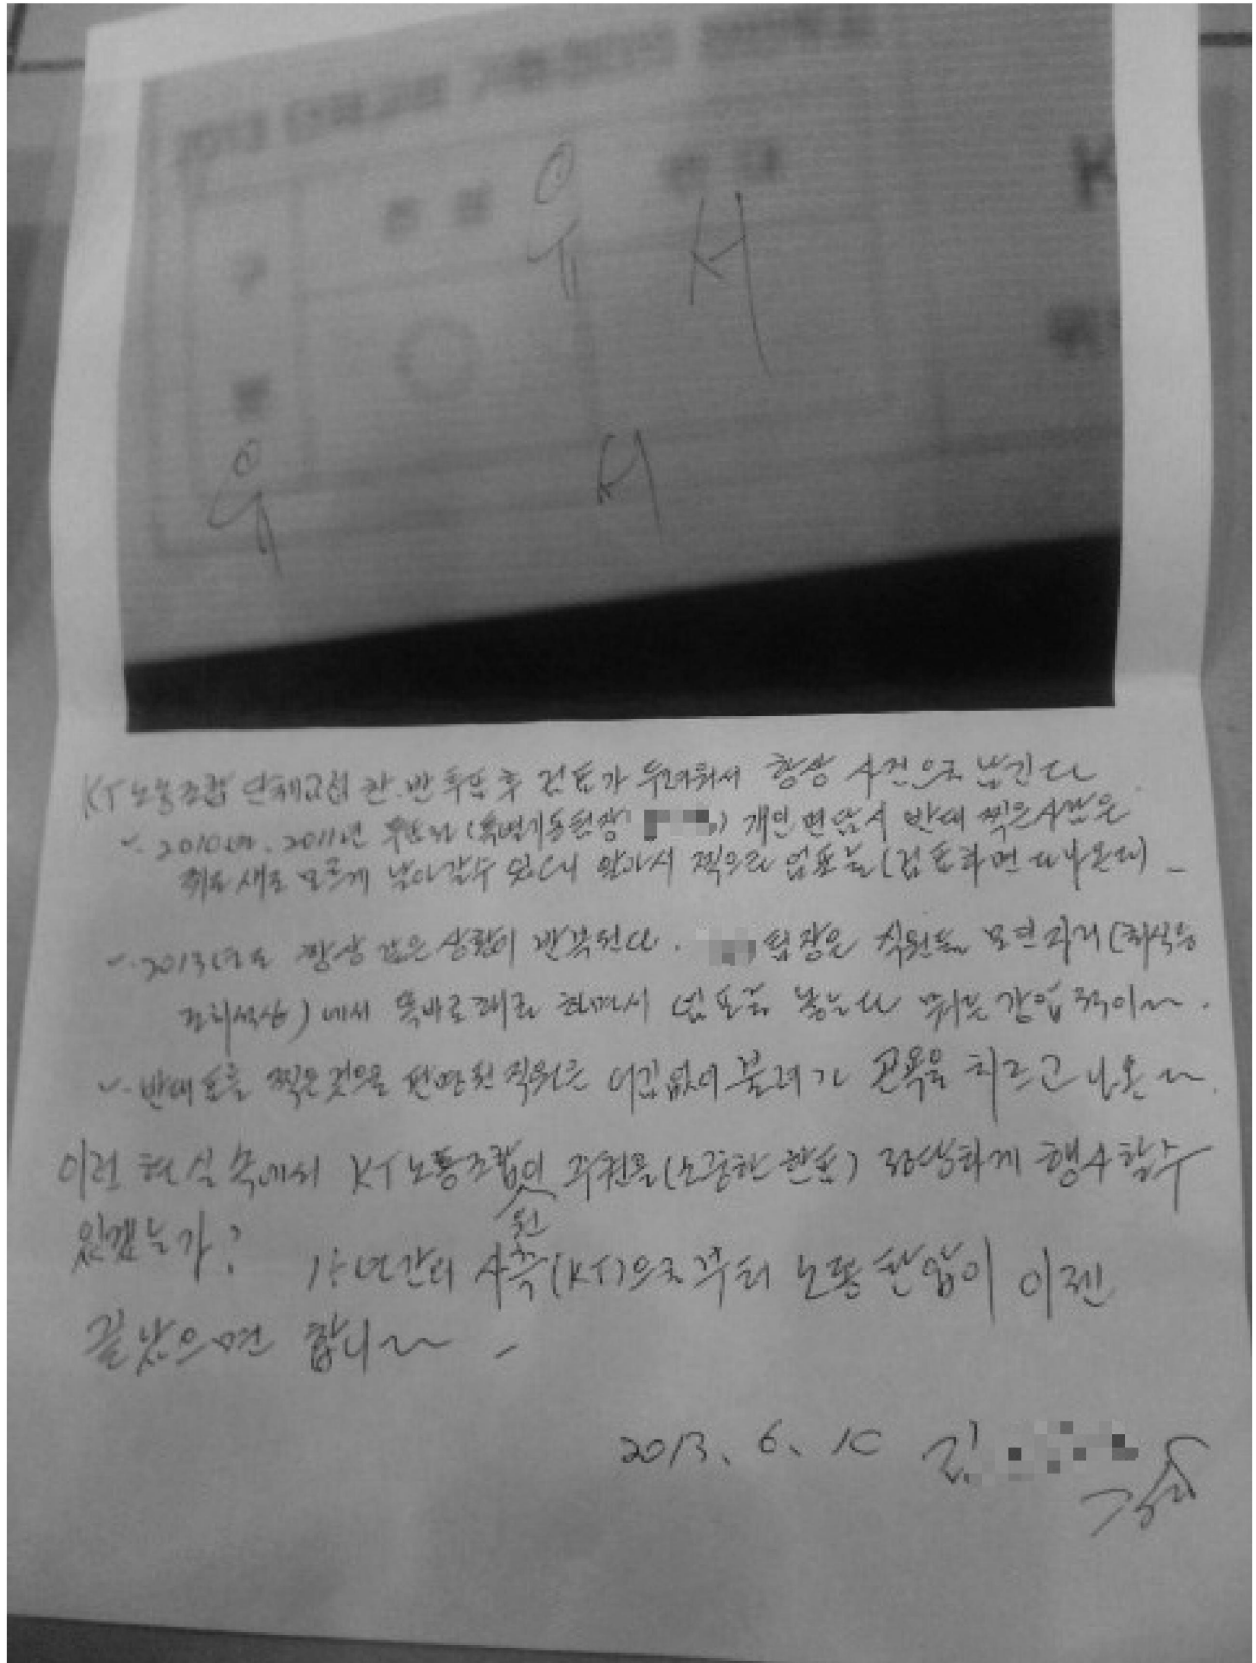 2013 단체교섭
찬 성
반 대
K
구
분
유 서
유 서
KT노동조합 단체교섭 찬.반 투표 후 검표가 두려워서 항상 사진으로 남긴다.
2010년, 2011년 투표시 ( ) 개인 면담시 반대 찍은 사람은
쥐도 새도 모르게 날아갈수 있으니 알아서 찍으라 엄포를 (검표하면 다 나온다)
2013년도 항상 같은 상황이 반복된다. 팀장은 직원들 모인 자리 (회식등
조회석상)에서 똑바로 해라 하면서 엄포를 놓는다 뭐든 강압적이다.
반대표를 찍은 것으로 판명된 직원은 어김없이 불려가 곤욕을 치르고 나온다.
이런 현실 속에서 KT노동조합원이 주권을(소중한 한표) 정상하게 행사할수
있겠는가? 15년간의 사측(KT)으로부터 노동탄압이 이젠
끝났으면 합니다.
2013. 6. 10 김